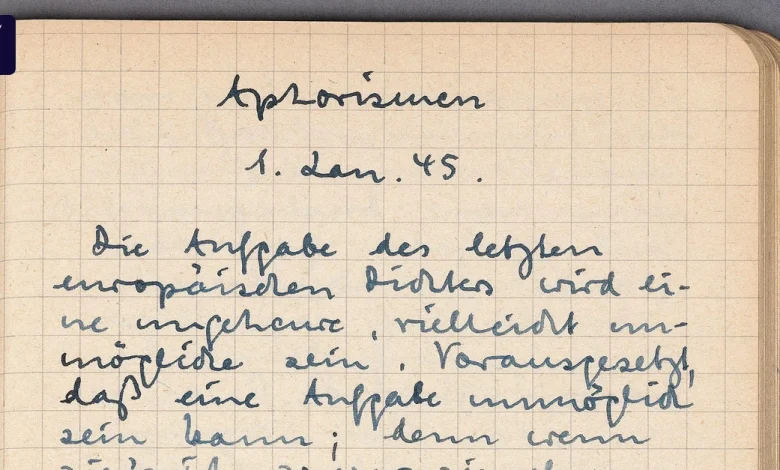 Aphorismen
1. Jan. 45.
Die Aufgabe des letzten
europäischen Dichters wird ei-
ne ungeheure, vielleicht un-
mögliche sein. Vorausgesetzt,
daß eine Aufgabe unmöglich
sein kann; denn wenn